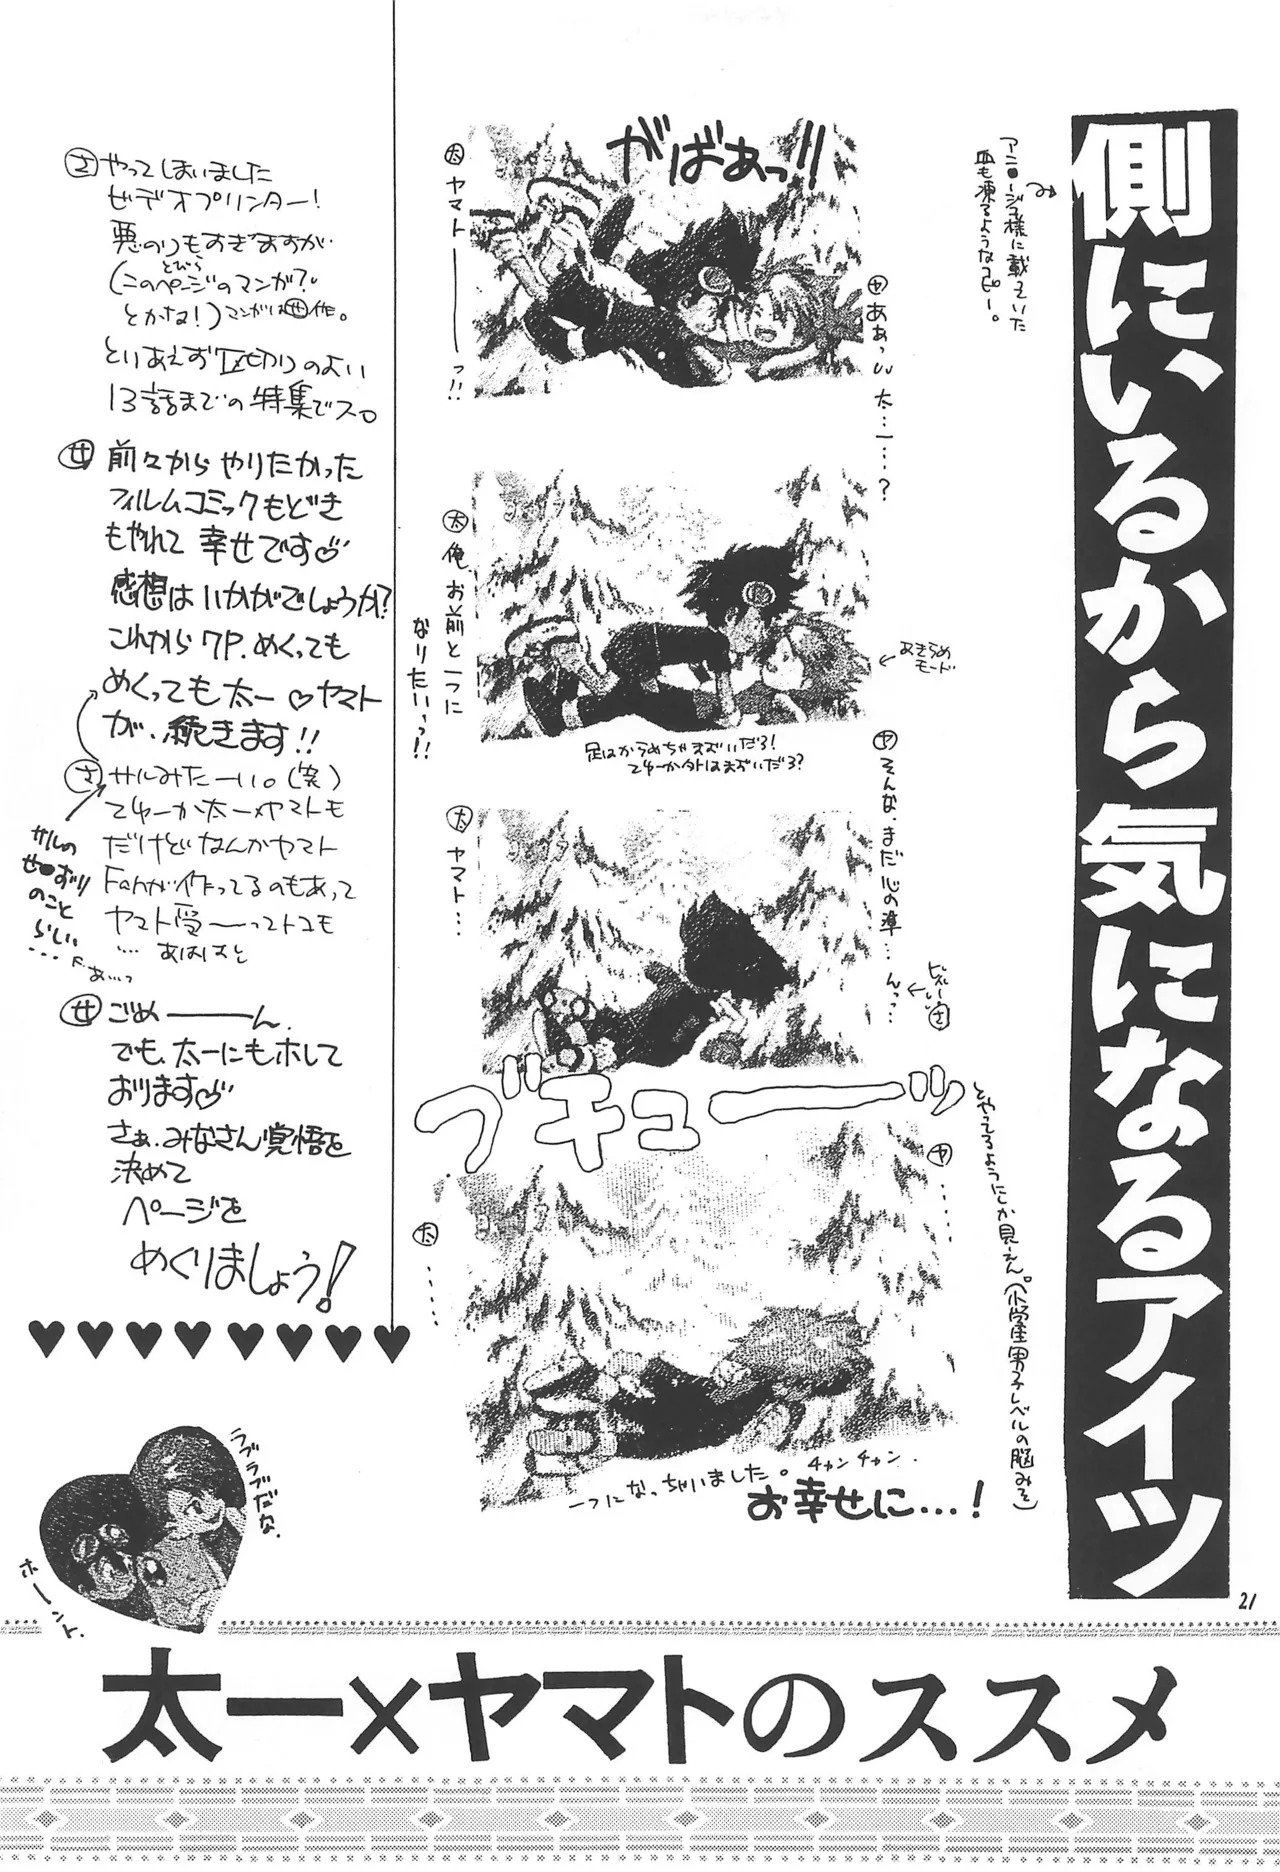 側にいるから気になるアイツ
アニ●ージュ様に載っていた
血も凍るようなコピー。
がばあっ!!
太 ヤマト―――っ!!
ヤ ああっ 太…一…?
太 俺、お前と一つに
なりたいっっ!!
あきらめ
モード
足はからめちゃマズいだろ!
てゆーか外はまずいだろ?
ヤ そんな、まだ心の準…んっ…
太 ヤマト…
ブキューーーッ
ヤ ……
太 ……
とやってるようにしか見えん(小学生男子レベルの脳みそ)
一つになっちゃいました。チャンチャン.
お幸せに…!
さ やってしまいました
ビデオプリンター!
悪のりもすぎますが
(このページのマンガ?
とびら
とかね!)マンガは世作。
とりあえず区切りのよい
13話までの特集でス。
せ 前々からやりたかった
フィルムコミックもどき
もやれて 幸せです♡
感想はいかがでしょうか?
これから7P.めくっても
めくっても太一♡ヤマト
が、続きます!!
さ サルみたーい。(笑)
てゆーか太一×ヤマトも
だけどなんかヤマト
Fanが作ってるのもあって
ヤマト受――ってトコも
… あはは
サルの
せ●ずり
のこと
らしい…
あ…っ
せ ごめ―――ん.
でも、太一にもホして
おります♡
さぁ、みなさん覚悟を
決めて
ページを
めくりましょう!
♥♥♥♥♥♥♥♥
ラブラブだな.
ホーント.
21
太一×ヤマトのススメ